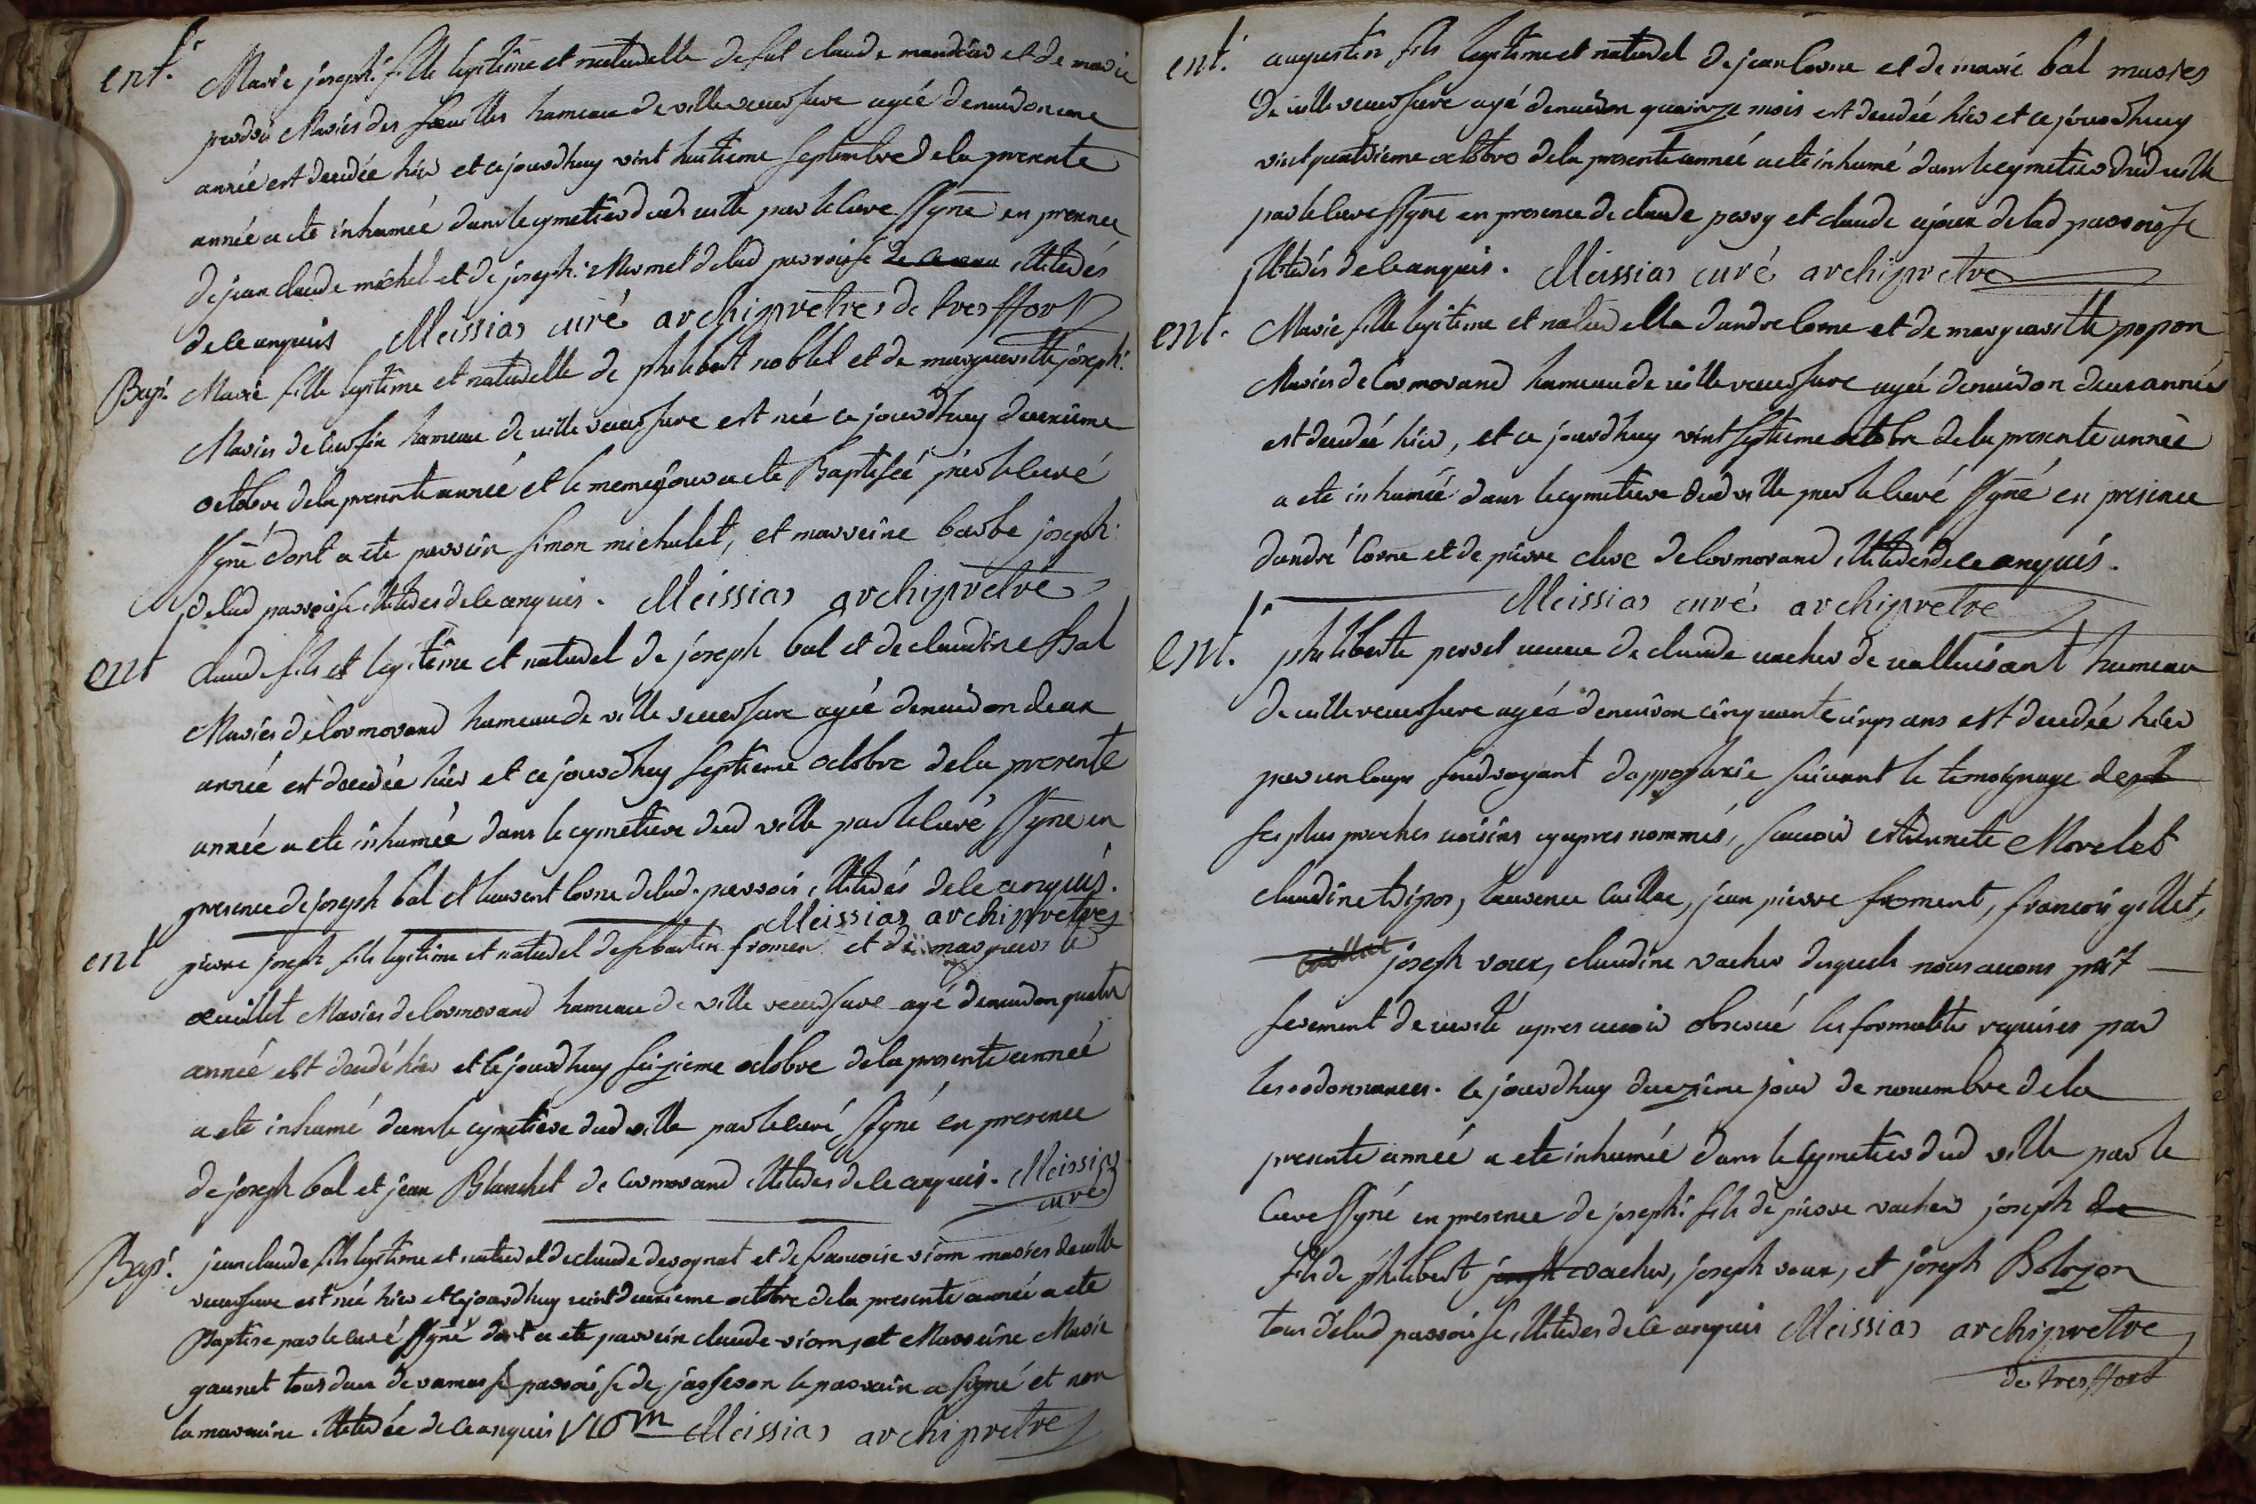 ent.t Marie joseph.t fille legitime et naturelle de fut claude et de marie
Mariés des feuilles hameau de villeveursure agée denviron une
année est decedée hier et cejourdhuy vint huitieme septembre dela presente
année a ete inhumée dans le cymetier dud ville par le curé ssyné en presence
de jean claude michel et de joseph.t delad parroisse illiterés
de ce enquis Meissias curé archipretre de tresffort
Bap.t Marie fille legitime et naturelle de philibert noblet et de margueritte joseph.t
Mariés de hameau de villeveursure est née ce jourdhuy deuxieme
octobre dela presente année et le meme jour a ete Baptisée par le curé
ssyné dont a ete parrain simon michalet, et marreine barbe joseph.t
delad parroisse illiteres de ce enquis. Meissias archipretre
ent Claude fils et legitime et naturel de joseph bal et de claudine Bal
Mariés de cormorand hameau de ville veursure agée denviron deux
année est decedée hier et cejourdhuy septieme octobre dela presente
année a ete inhumée dans le cymetiere dud ville par le curé ssyné en
presence de joseph bal et laurent corne delad. parrois. illiterés de ce enquis.
Meissias archipretre
ent pierre joseph fils legitime et naturel de sebastin fromen et de marguerite
œuillet Mariés de cormorand hameau de ville veursure agé denviron quatre
année est decedé hier et cejourdhuy seizieme octobre dela presente année
a ete inhumé dans le cymetiere dud ville par le curé ssyné en presence
de joseph bal et jean Blanchet de cormorand illiteres de ce enquis. Meissias
curé
Bap.t jean claude fils legitime et naturel de claude desognat et de francoise viom mariés de ville
veursure est né hier et cejourdhuy vint deuxieme octobre dela presente année a ete
Baptise par le curé ssyné dont a ete parrain claude viom, et Marreine Marie
gaunet tous deux de parroisse de jasseron le parrain a signé et non
la marraine illiterée de ce enquis viom Meissias archipretre
ent.t augustin fils legitime et naturel de jean corne et de marie bal mariés
de villeveursure agé denviron quainze mois est decedée hier et ce jourdhuy
vint quatrieme octobre dela presente année a ete inhumé dans le cymetier dud ville
par le curé ssyné en presence de claude perry et claude ajoux delad parroisse
illiterés de ce enquis. Meissias curé archipretre
ent. Marie fille legitime et naturelle dandre corne et de marguaritte popon
Mariés de cormorand hameau de villeveursure agée denviron deux années
est decedée hier, et ce jourdhuy vint septieme octobre dela presente année
a ete inhumée dans le cymetiere dud ville par le curé ssyné en presence
dandré corne et de pierre clerc de cormorand, illiteres de ce enquis.
Meissias curé archipretre
ent.t philiberte perret veuve de claude vacher de valluisant hameau
de villeveursure agée denviron cinquante cinq ans est decedée hier
par un coup foudroyant dappoplexie suivant le temoignage des
ses plus proches voisins cyapres nommés, scavoir etiennete Morelet
claudine tripoz, laurence caillat, jean pierre froment, francois gillet,
joseph voux, claudine vacher desquels nous avons prit
serement de verité apres avoir observé les formalités requises par
les ordonnances. ce jourdhuy douzieme jour de novembre dela
presente année a ete inhumée dans le cymetier dud ville par le
Cure ssyné en presence de joseph.t fils de pierre vacher joseph de
fils de philibert joseph vacher, joseph voux, et joseph Bolozon
tous delad parroisse illiteres de ce enquis Meissias archipretre
de tresffort